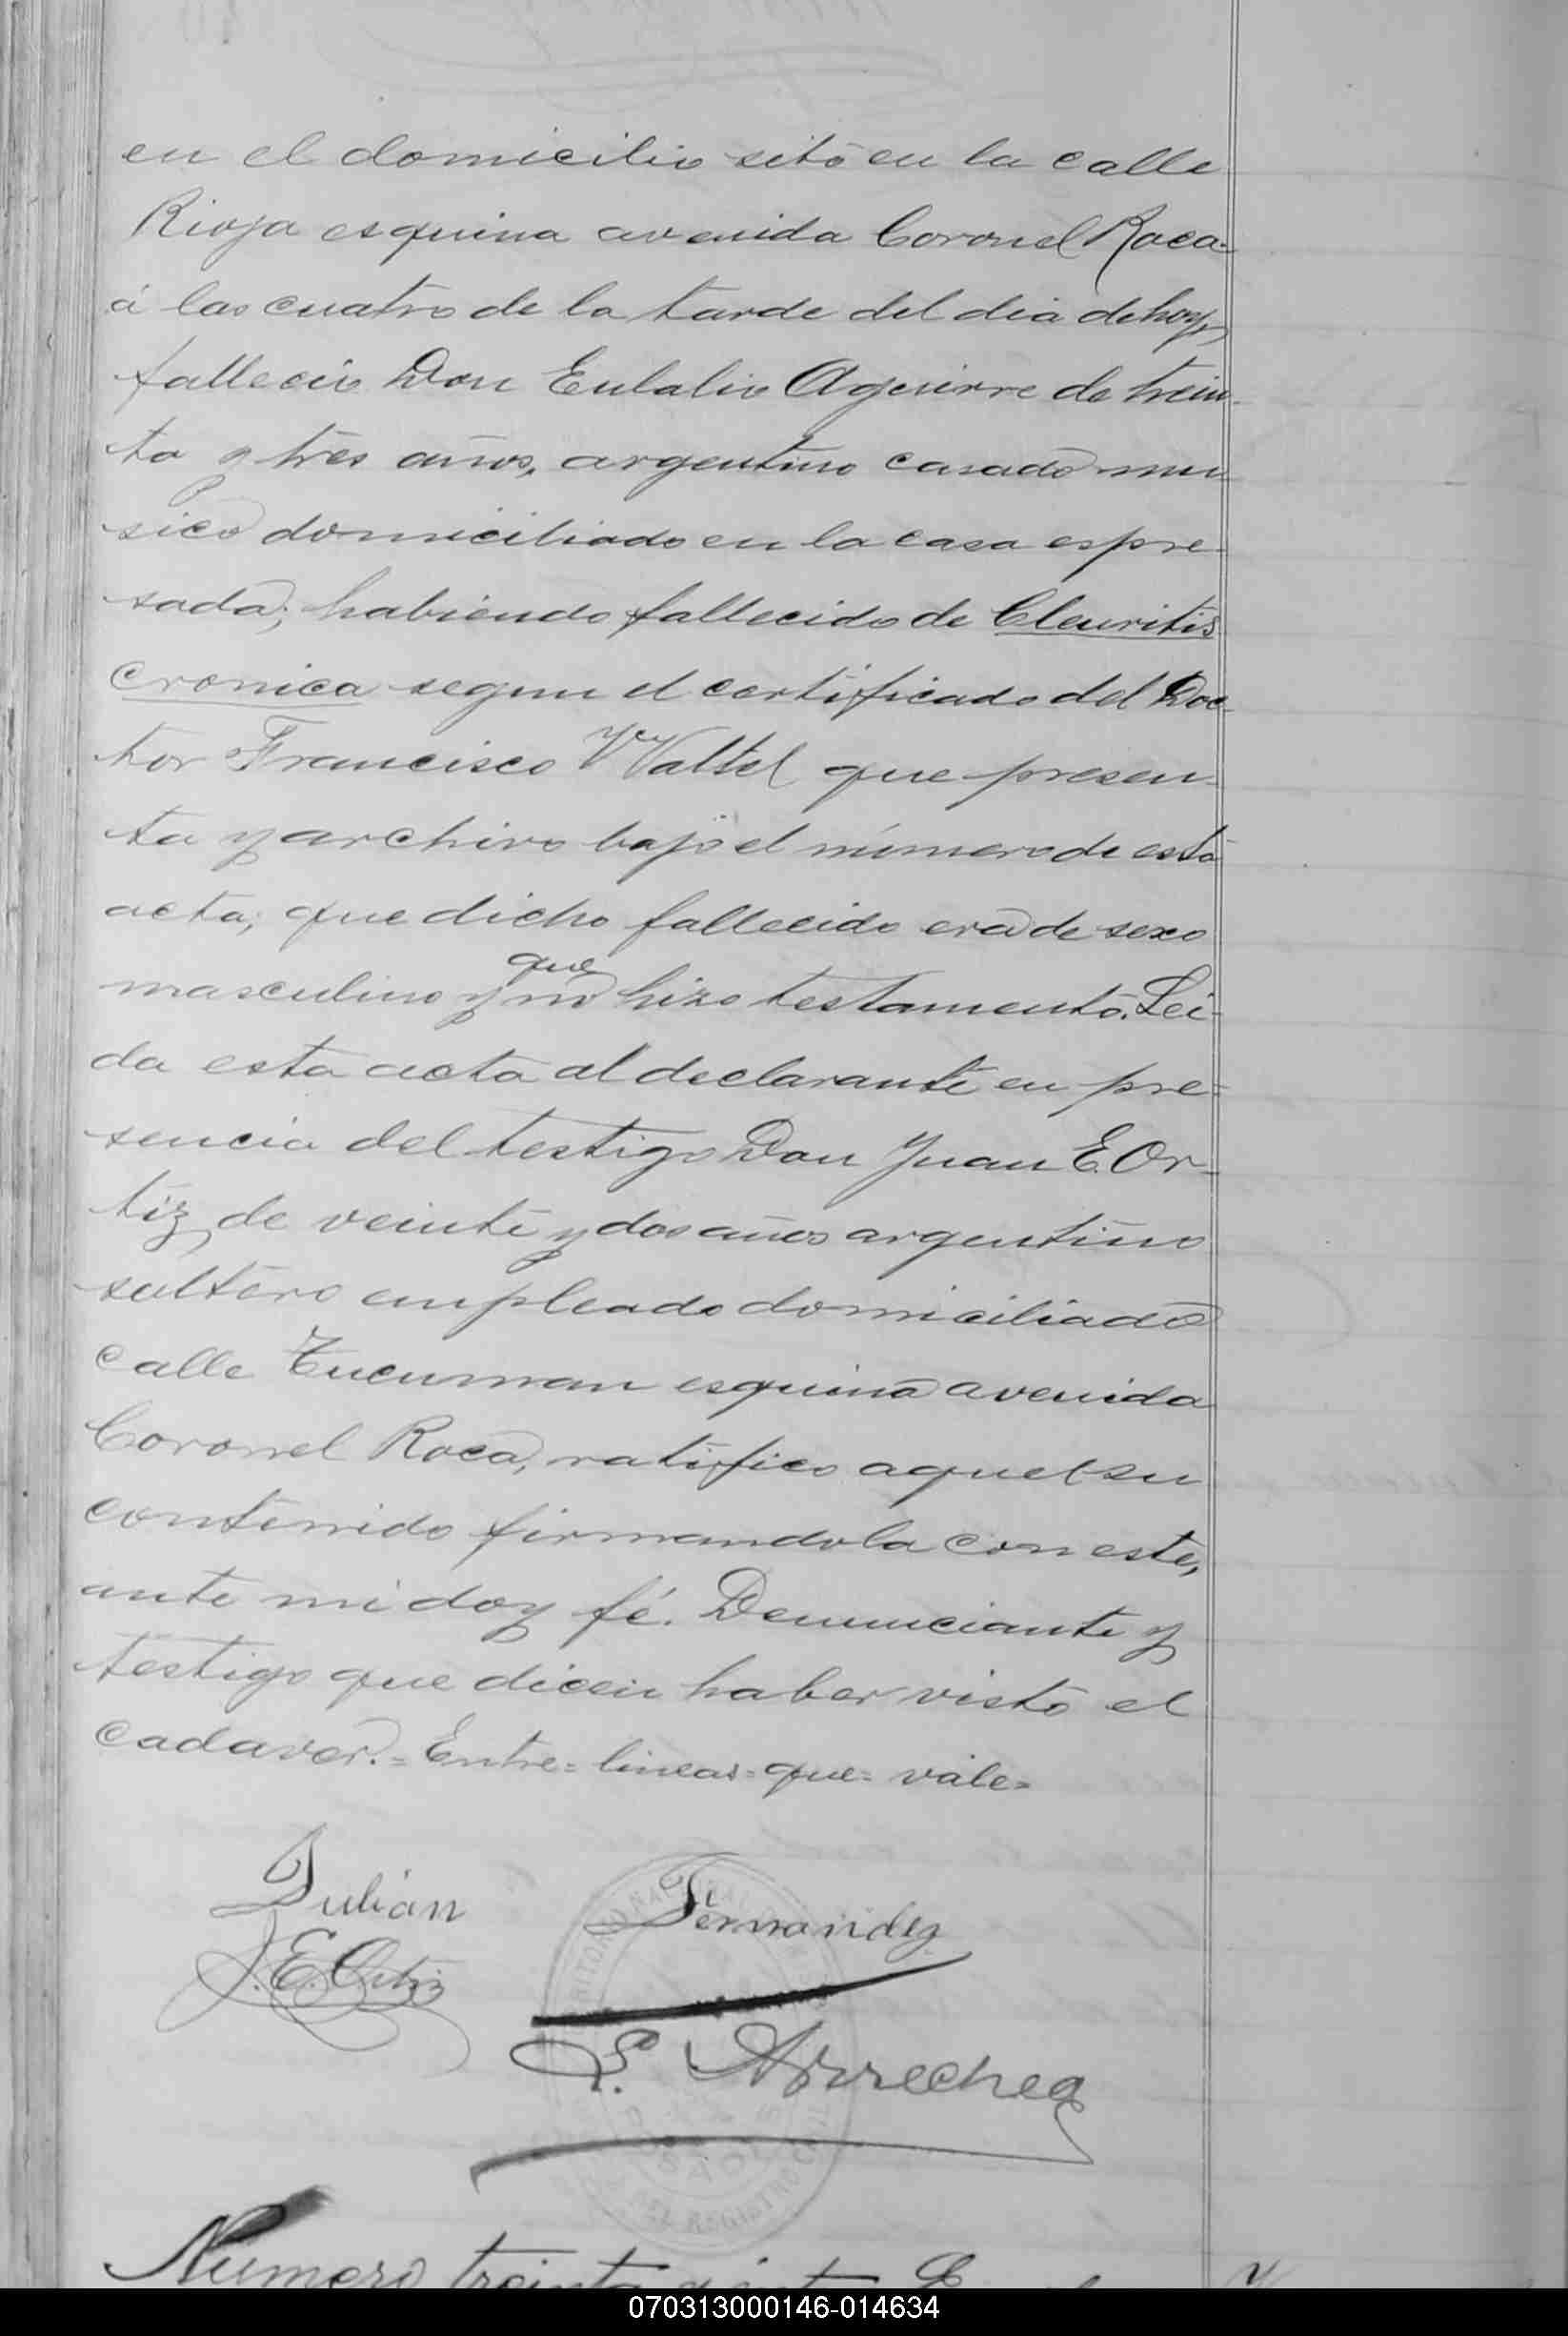 en el domicilio sito en la calle
Rioja esquina avenida Coronel Roca
á las cuatro de la tarde del dia de hoy,
fallecio Don Eulalio Aguirre de trein-
ta y tres años, argentino casado mu
sico domiciliado en la casa espre-
sada; habiendo fallecido de Cleuritis
cronica segun el certificado del Doc-
tor Francisco Waltel que presen-
ta y archivo bajo el número de esta
acta; que dicho fallecido era de sexo
masculino y que no hizo testamento. Lei-
da esta acta al declarante en pre-
sencia del testigo Don Juan E. Or-
tiz, de veinte y dos años argentino
soltero empleado domiciliado
calle Tucuman esquina avenida
Coronel Roca, ratifico aquel su
contenido firmandola con este,
ante mi doy fé. Denunciante y
testigo que dicen haber visto el
cadaver.= Entre= lineas= que= vale=
Julian Fernandez
J. E. Ortiz
P. Arrechea
Numero treinta
070313000146-014634